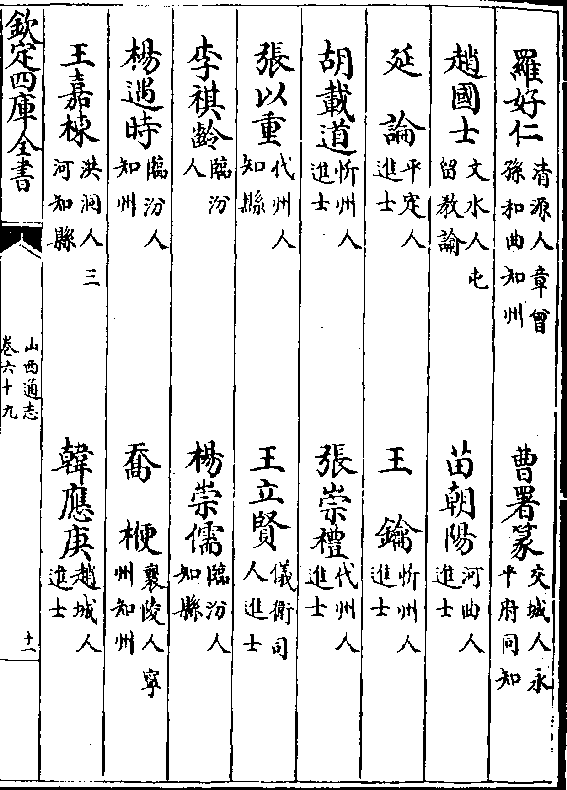 羅好仁 清源人章曾孫和曲知州 曹署篆 交城人永平府同知
趙國士 文水人屯留教諭 苗朝陽 河曲人進士
延論 平定人進士 王鑰 忻州人進士
胡載道 忻州人進士 張崇禮 代州人進士
張以重 代州人知縣 王立賢 儀衛司人進士
李祺齡 臨汾人 楊崇儒 臨汾人知縣
楊遇時 臨汾人知州 喬楩 襄陵人寧州知州
王嘉棟 洪洞人三河知縣 韓應庚 趙城人進士
欽定四庫全書
山西通志
卷六十九
十一